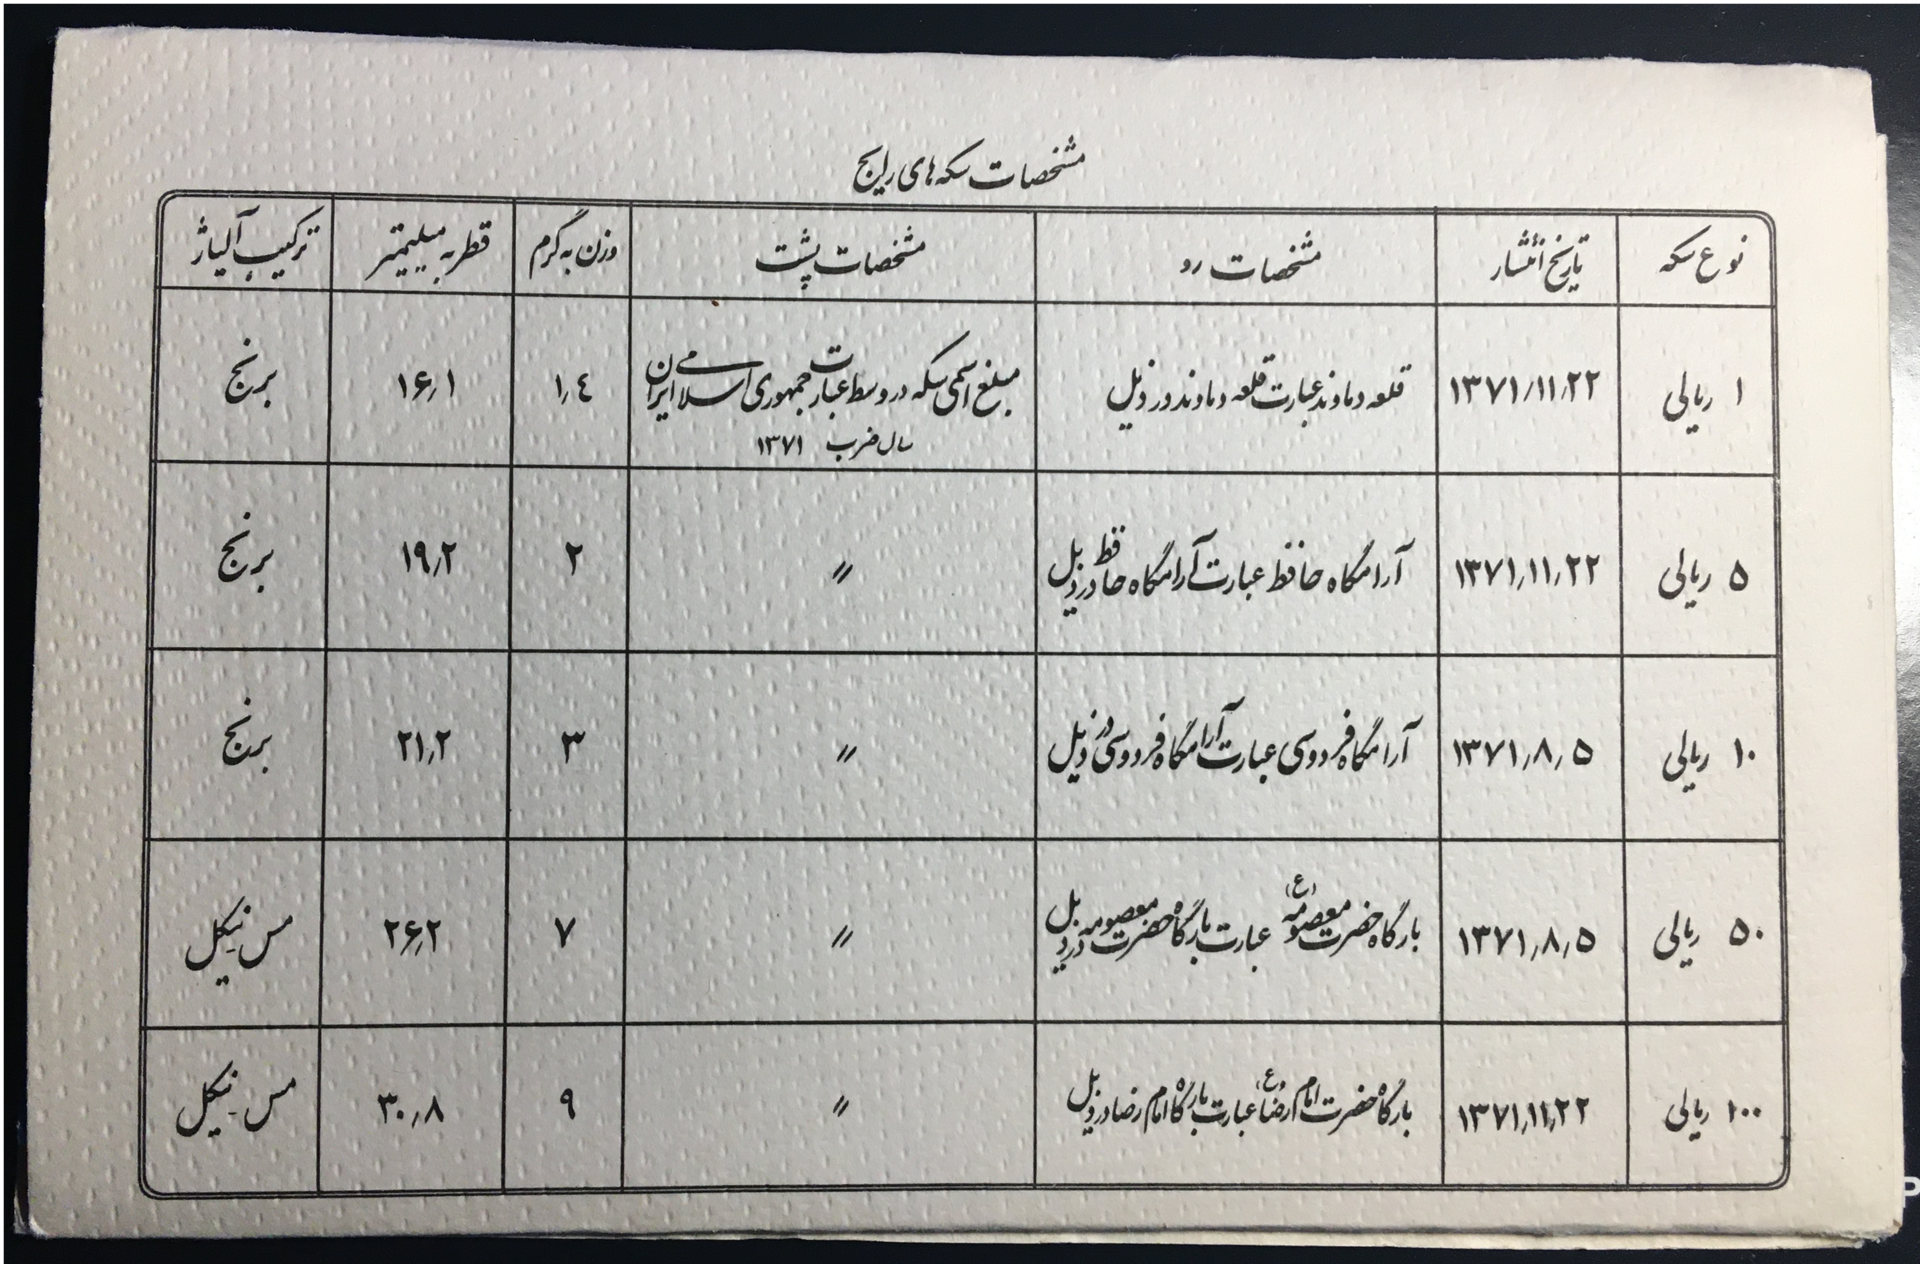 مشخصات سکه های رایج
نوع سکه	تاریخ انتشار	مشخصات رو	مشخصات پشت	وزن به گرم	قطر به میلیمتر	ترکیب آلیاژ
۱ ریالی	۱۳۷۱٫۱۱٫۲۲	قلعه دماوند عبارت قلعه دماوند در ذیل	مبلغ اسمی سکه در وسط عبارت جمهوری اسلامی ایران	۱٫٤	۱۶٫۱	برنج
سال ضرب ۱۳۷۱
۵ ریالی	۱۳۷۱٫۱۱٫۲۲	آرامگاه حافظ عبارت آرامگاه حافظ در ذیل	〃	۲	۱۹٫۲	برنج
۱۰ ریالی	۱۳۷۱٫۸٫۵	آرامگاه فردوسی عبارت آرامگاه فردوسی در ذیل	〃	۳	۲۱٫۲	برنج
۵۰ ریالی	۱۳۷۱٫۸٫۵	بارگاه حضرت معصومه (ع) عبارت بارگاه حضرت معصومه در ذیل	〃	۷	۲۶٫۲	مس نیکل
۱۰۰ ریالی	۱۳۷۱٫۱۱٫۲۲	بارگاه حضرت امام رضا (ع) عبارت بارگاه امام رضا در ذیل	〃	۹	۳۰٫۸	مس-نیکل
P